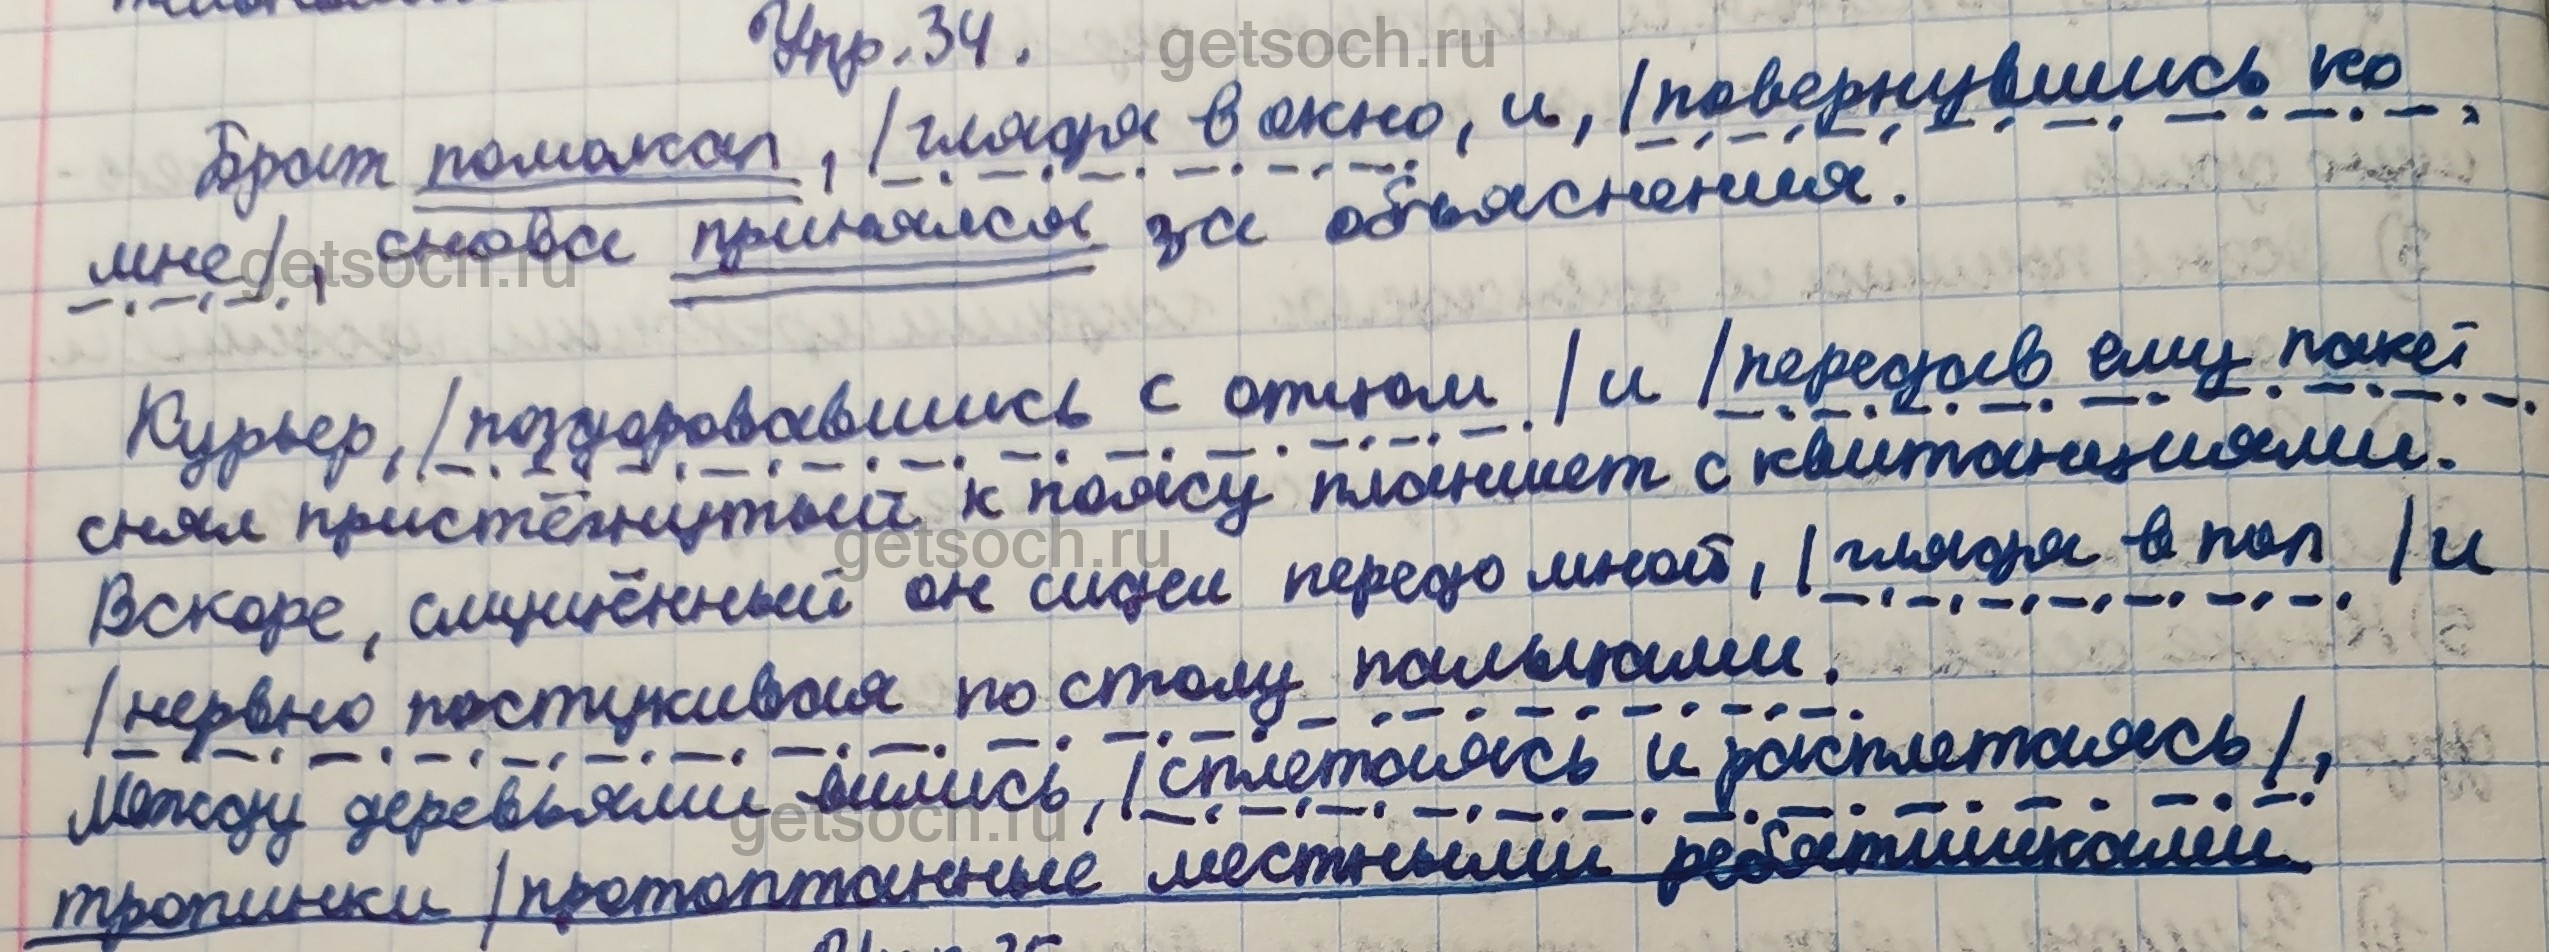 Упр. 34.
getsoch.ru
Брат помолчал, /глядя в окно, и, /повернувшись ко
мне/, снова принялся за объяснения.
getsoch.ru
Курьер, /поздоровавшись с отцом/ и /передав ему пакет
снял пристёгнутый к поясу планшет с квитанциями.
getsoch.ru
Вскоре, смущённый он сидел передо мной, /глядя в пол/ и
/нервно постукивая по столу пальцами.
Между деревьями вились, /сплетаясь и расплетаясь/,
getsoch.ru
тропинки /протоптанные местными ребятишками